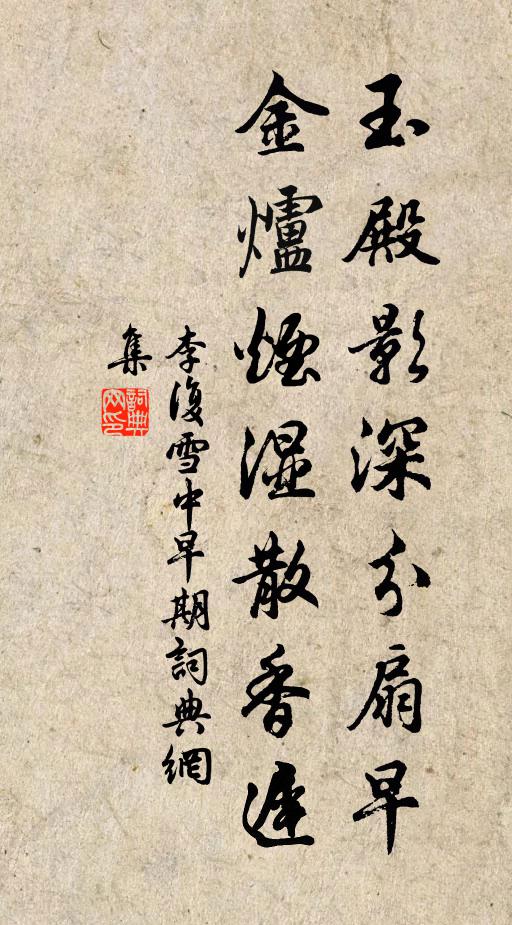 玉殿影深分扇早
金爐煙湿散香遲
李復雪中早期詞典網
集
詞典網印